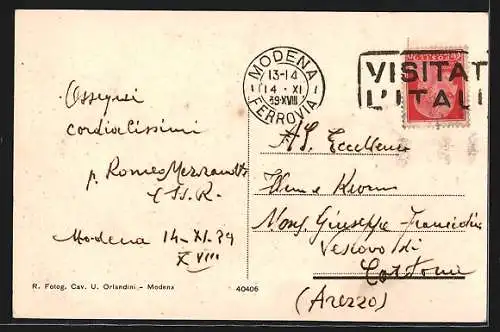 MODENA
13-14
14 · XI
39·XVIII
FERROVIA
VISITAT
L'ITALI
Ossequi
cordialissimi
p. Romeo
Modena 14-XI-39
XVIII
A S. Eccellenza
Mons. Giuseppe Franciolini
Vescovo di
Cortona
(Arezzo)
R. Fotog. Cav. U. Orlandini - Modena
40406